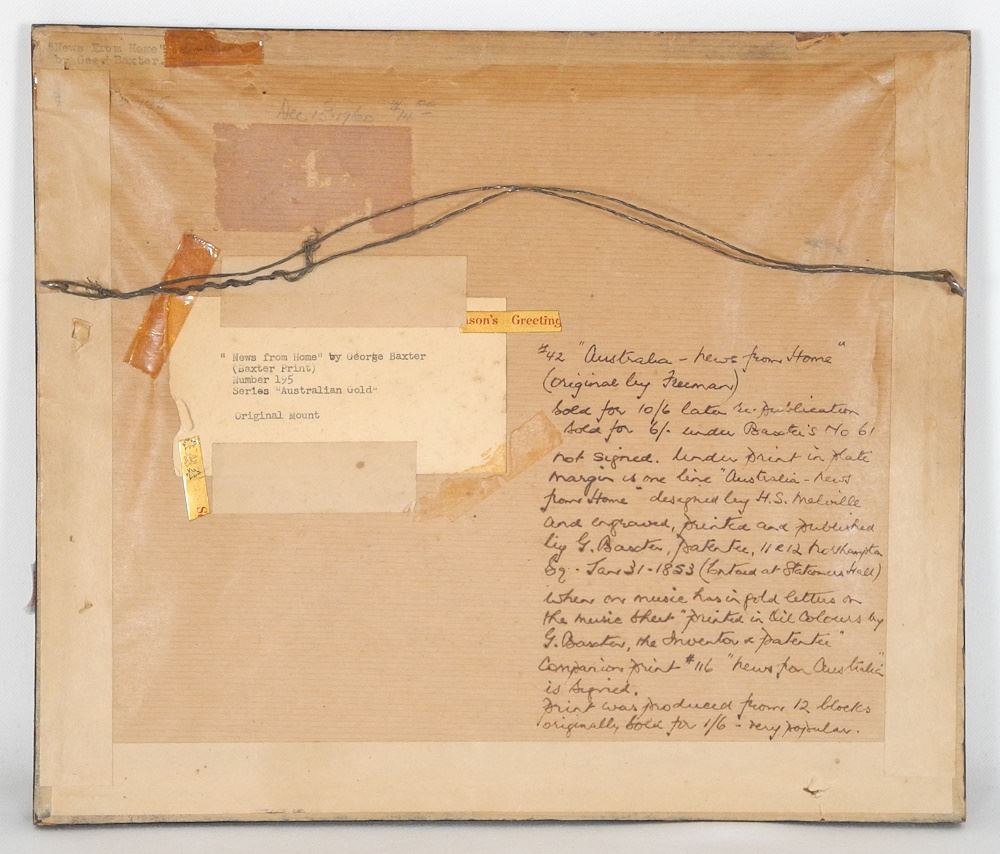 "News From Home"
by Geo. Baxter.
Dec 15-1960 $14.00
son's Greeting
"News from Home" by George Baxter
(Baxter Print)
Number 195
Series "Australian Gold"
Original Mount
S
#42 "Australia - news from Home"
(original by Freeman)
sold for 10/6 later re-publication
sold for 6/- under Baxter's No 61
not signed. Under print in plate
margin is one line "Australia - news
from Home" designed by H.S. Melville
and engraved, printed and published
by G. Baxter, patentee, 11 & 12 Northampton
Sq. - Jan 31-1853 (Entered at Stationers Hall)
when on music has in gold letters on
the music sheet "printed in Oil Colours by
G. Baxter, the Inventor & patentee"
Companion print #116 "news from Australia"
is signed.
print was produced from 12 blocks
originally sold for 1/6 - very popular.